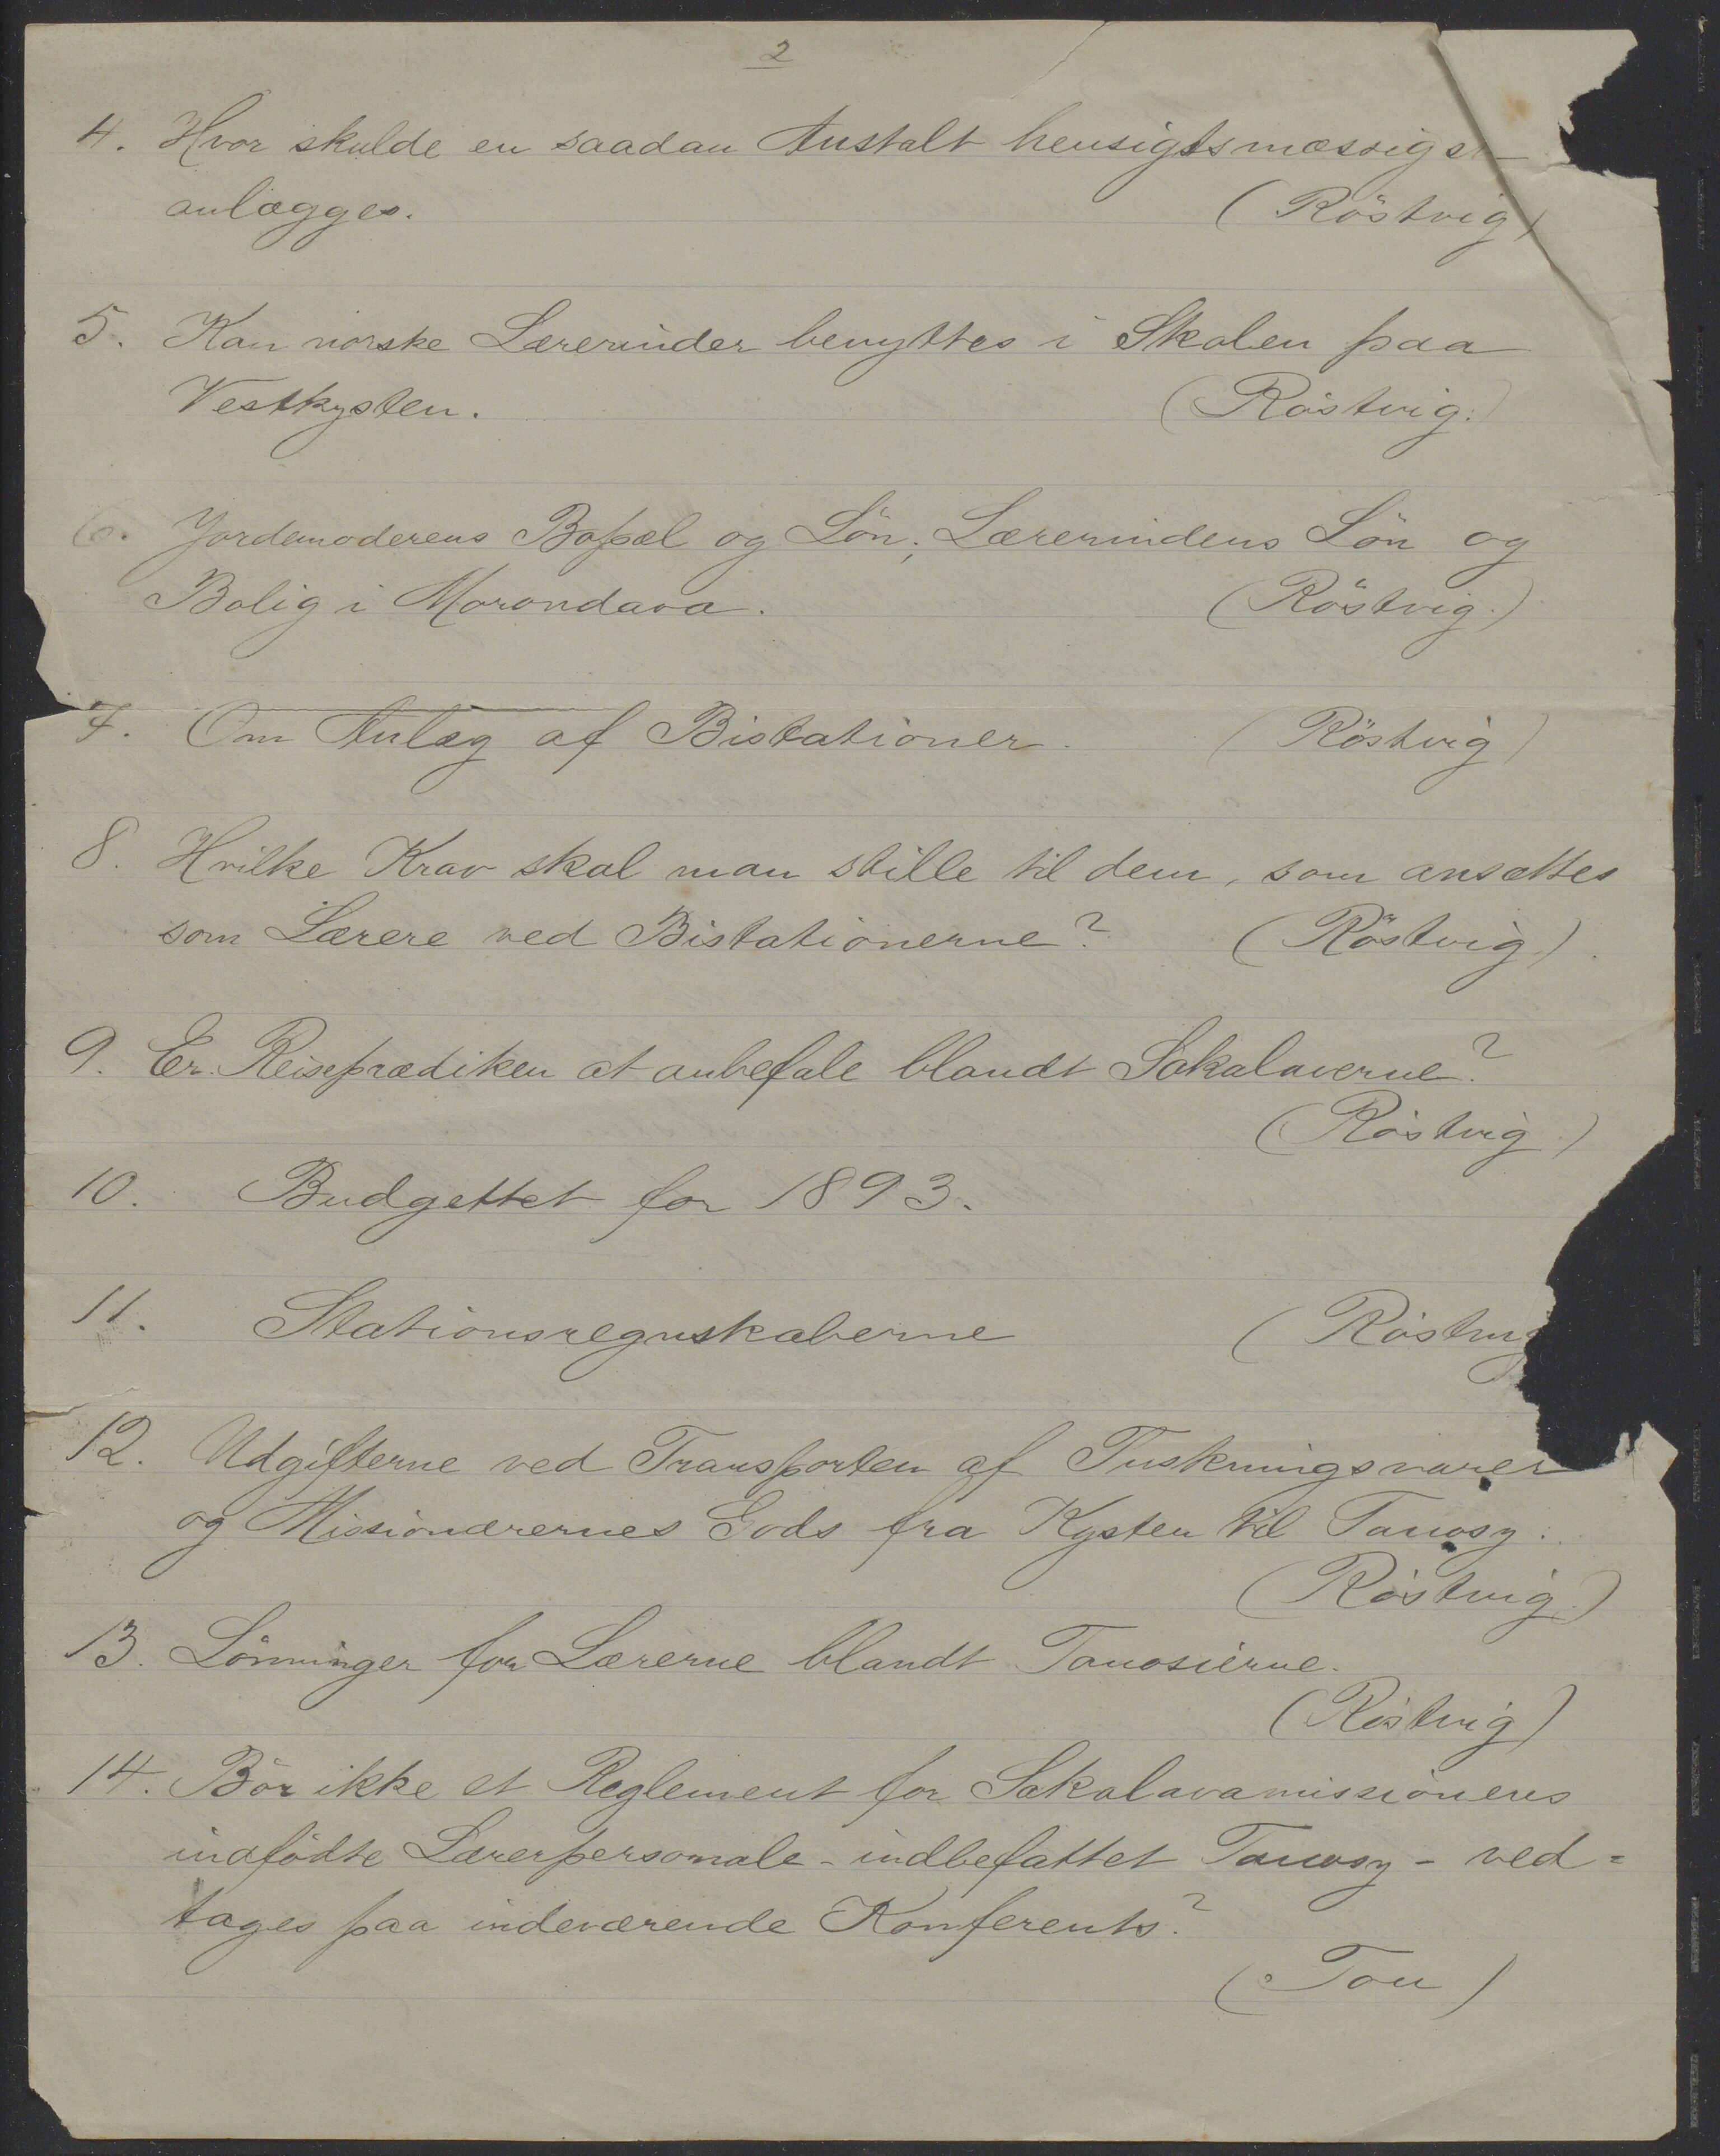 2
4. Hvor skulde en saadan Anstalt hensigtsmæssigst
anlægges. (Röstvig)
5. Kan norske Lærerinder benyttes i Skolen paa
Vestkysten. (Röstvig.)
6. Jordemoderens Bopæl og Lön; Lærerindens Lön og
Bolig i Morondava. (Röstvig.)
7. Om Anlæg af Bistationer. (Röstvig)
8. Hvilke Krav skal man stille til dem, som ansættes
som Lærere ved Bistationerne? (Röstvig).
9. Er Reiseprædiken at anbefale blandt Sakalaverne?
(Röstvig)
10. Budgettet for 1893.
11. Stationsregnskaberne (Röstvig
12. Udgifterne ved Transporten af Tuskningsvarer
og Missionærernes Gods fra Kysten til Tanosy.
(Röstvig.)
13. Lönninger for Lærerne blandt Tanosierne.
(Röstvig)
14. Bör ikke et Reglement for Sakalavamissionens
indfödte Lærerpersonale - indbefattet Tanosy - ved=
tages paa indeværende Konferents?
(Tou)